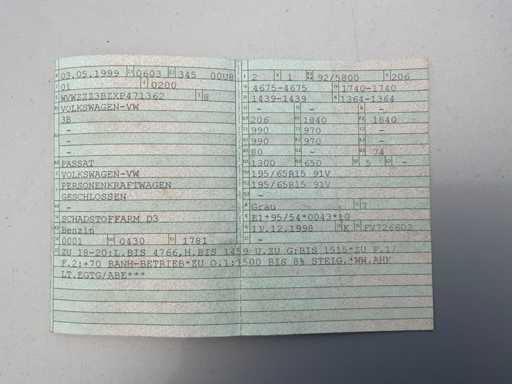 03.05.1999 0603 345 00U8
01 0200
WVWZZZ3BZXP471362 8
VOLKSWAGEN-VW
3B
-
-
-
PASSAT
VOLKSWAGEN-VW
PERSONENKRAFTWAGEN
GESCHLOSSEN
-
SCHADSTOFFARM D3
Benzin
0001 0430 1781
2 1 92/5800 206
4675-4675 1740-1740
1439-1439 1364-1364
- - -
206 1840 1840
990 970 -
990 970 -
80 - 74
1300 650 5 -
195/65R15 91V
195/65R15 91V
-
-
Grau 7
E1*95/54*0043*10
11.12.1998 K FV726602
-
ZU 18-20:L.BIS 4766,H.BIS 1459 U.ZU G:BIS 1515*ZU F.1/
F.2:+70 B.ANH-BETRIEB*ZU O.1:1500 BIS 8% STEIG.*WW.AHK
LT.EGTG/ABE***